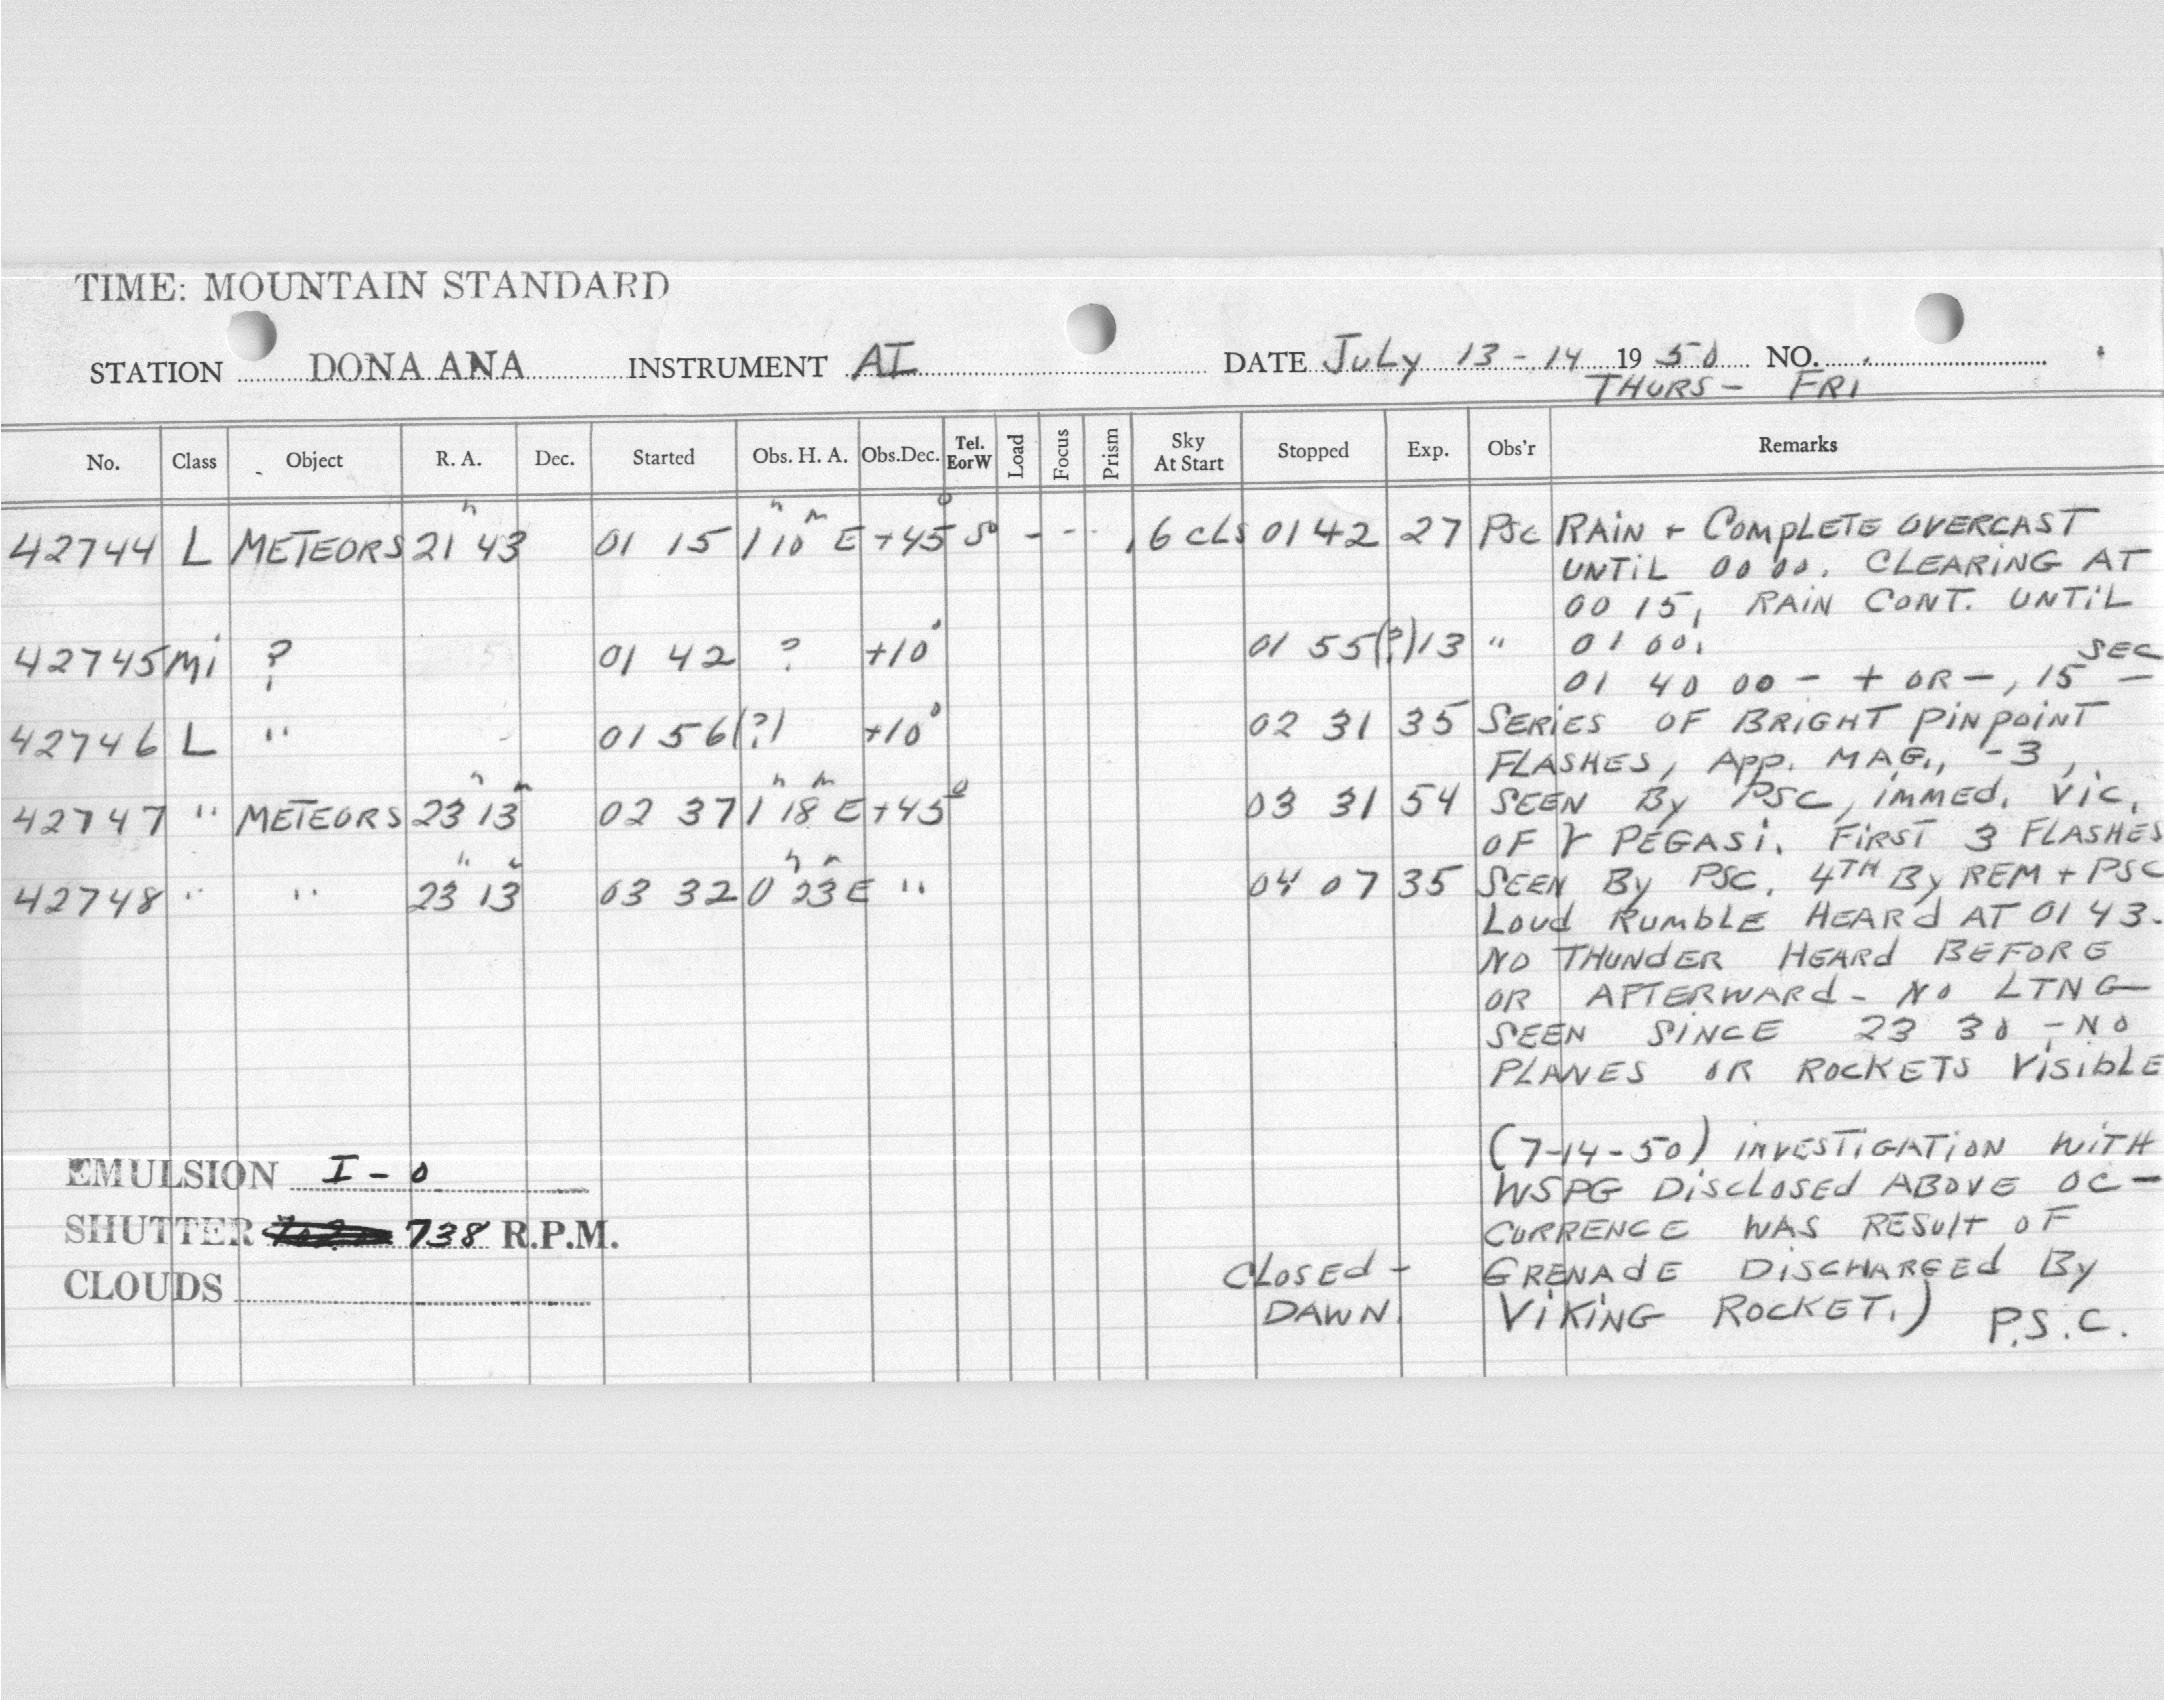 TIME: MOUNTAIN STANDARD
STATION DONA ANA INSTRUMENT AI DATE JULY 13-14 1950 NO.
THURS - FRI
No. Class Object R. A. Dec. Started Obs. H. A. Obs. Dec. Tel. E or W Load Focus Prism Sky At Start Stopped Exp. Obs'r Remarks
42744 L METEORS 21h 43 01 15 1h 10m E +45° S° - - - , 6 cLS 01 42 27 PSC RAIN + COMPLETE OVERCAST
UNTIL 00 00. CLEARING AT
00 15, RAIN CONT. UNTIL
42745 Mi ? 01 42 ? +10° 01 55(?) 13 " 01 00.
01 40 00 - + OR -, 15 SEC —
42746 L " 01 56(?) +10° 02 31 35 SERIES OF BRIGHT PINPOINT
FLASHES, APP. MAG., -3,
42747 " METEORS 23h 13m 02 37 1h 18m E +45° 03 31 54 SEEN By PSC, IMMED. VIC.
OF γ PEGASI. FIRST 3 FLASHES
42748 " " 23 13 03 32 0h 23m E " 04 07 35 SEEN By PSC. 4TH By REM + PSC
LOUD RUMBLE HEARD AT 01 43.
NO THUNDER HEARD BEFORE
OR AFTERWARD - NO LTNG
SEEN SINCE 23 30 - NO
PLANES OR ROCKETS VISIBLE
(7-14-50) INVESTIGATION WITH
EMULSION I - O
WSPG DISCLOSED ABOVE OC-
SHUTTER 738 R.P.M.
CURRENCE WAS RESULT OF
CLOUDS
CLOSED - GRENADE DISCHARGED By
DAWN. VIKING ROCKET.) P.S.C.